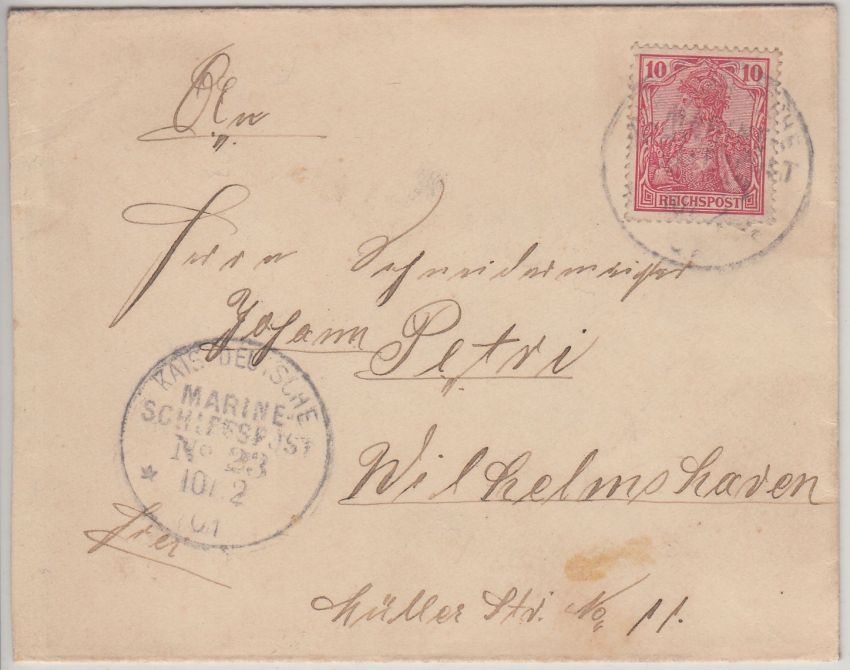 An
10 10
REICHSPOST
Herrn Schneidermeister
Johann Petri
KAIS. DEUTSCHE
MARINE-
SCHIFFSPOST
No 23
10/ 2
01
Wilhelmshaven
Hier
Müller Str. No 11.